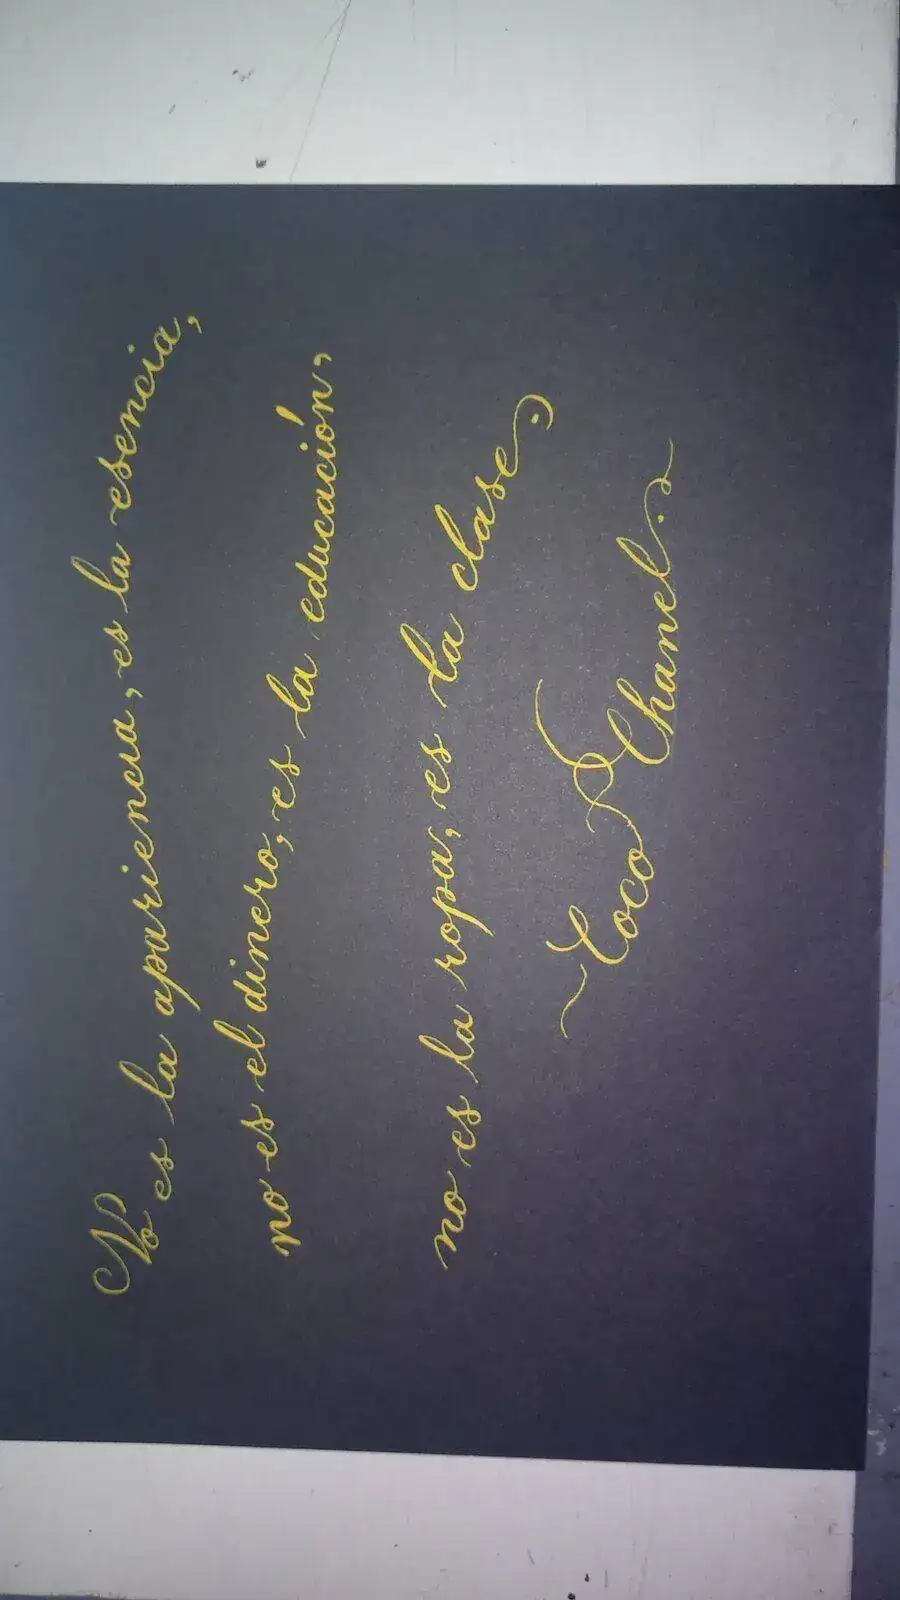 No es la apariencia, es la esencia,
no es el dinero, es la educación,
no es la ropa, es la clase.
~Coco Chanel.~